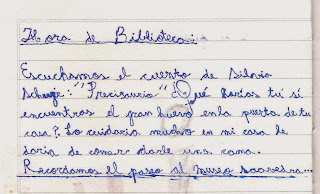 Hora de Biblioteca:
Escuchamos el cuento de Silvia
Scheujer: "Precisaurio" ¿Qué harías tú si
encuentros el gran huevo enla puerta de tu
casa? Lo cuidaria mucho en mi casa le
daria de comer darle una cama.
Recordamos el paseo al museo saavedra...